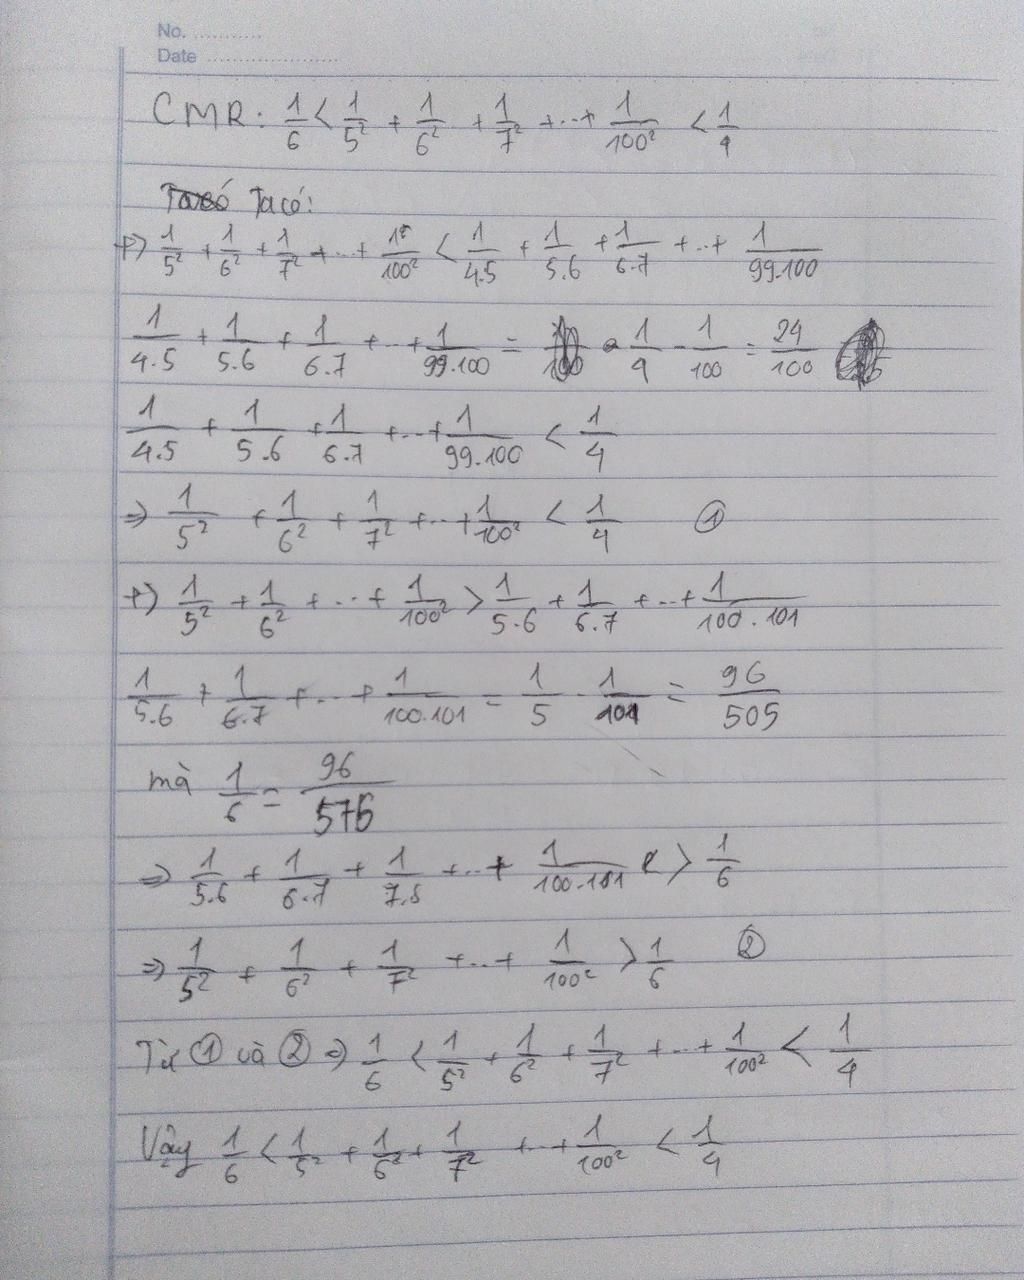 No. ...........
Date ......................
CMR: 1/6 < 1/5² + 1/6² + 1/7² + ... + 1/100² < 1/4
Ta có:
+) 1/5² + 1/6² + 1/7² + ... + 1/100² < 1/4.5 + 1/5.6 + 1/6.7 + ... + 1/99.100
1/4.5 + 1/5.6 + 1/6.7 + ... + 1/99.100 = 1/4 - 1/100 = 24/100
1/4.5 + 1/5.6 + 1/6.7 + ... + 1/99.100 < 1/4
⇒ 1/5² + 1/6² + 1/7² + ... + 1/100² < 1/4 ①
+) 1/5² + 1/6² + ... + 1/100² > 1/5.6 + 1/6.7 + ... + 1/100.101
1/5.6 + 1/6.7 + ... + 1/100.101 = 1/5 - 1/101 = 96/505
mà 1/6 = 96/576
⇒ 1/5.6 + 1/6.7 + 1/7.8 + ... + 1/100.101 > 1/6
⇒ 1/5² + 1/6² + 1/7² + ... + 1/100² > 1/6 ②
Từ ① và ② ⇒ 1/6 < 1/5² + 1/6² + 1/7² + ... + 1/100² < 1/4
Vậy 1/6 < 1/5² + 1/6² + 1/7² + ... + 1/100² < 1/4